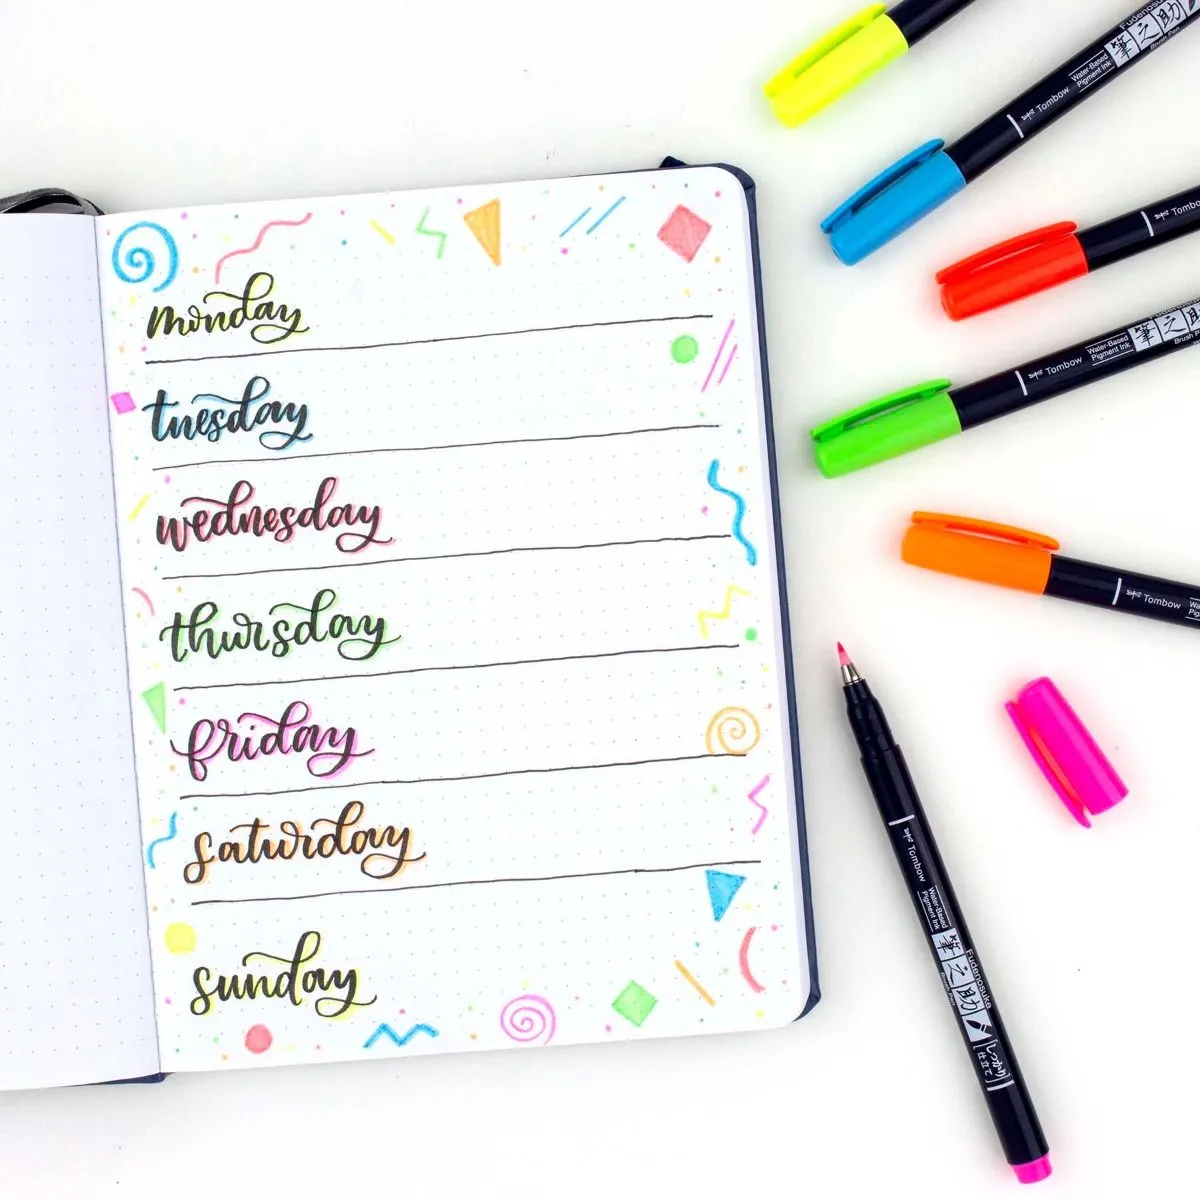 monday
tuesday
wednesday
thursday
friday
saturday
sunday
Fudenosuke
筆之助
Brush Pen
Water-Based
Pigment Ink
Tombow
Tombow
Fudenosuke
筆之助
Brush Pen
Water-Based
Pigment Ink
Tombow
Tombow
Tombow
Water-Based
Pigment Ink
筆之助
Fudenosuke
Brush Pen